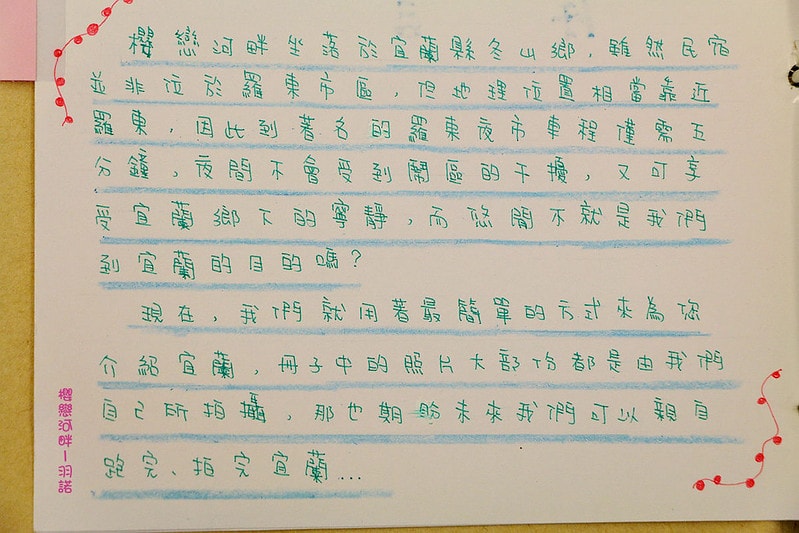 櫻戀河畔坐落於宜蘭縣冬山鄉，雖然民宿
並非位於羅東市區，但地理位置相當靠近
羅東，因此到著名的羅東夜市車程僅需五
分鐘，夜間不會受到鬧區的干擾，又可享
受宜蘭鄉下的寧靜，而悠閒不就是我們
到宜蘭的目的嗎？
現在，我們就用著最簡單的方式來為您
介紹宜蘭，冊子中的照片大部份都是由我們
自己所拍攝，那也期盼未來我們可以親自
跑完、拍完宜蘭...
櫻戀河畔－羽諾